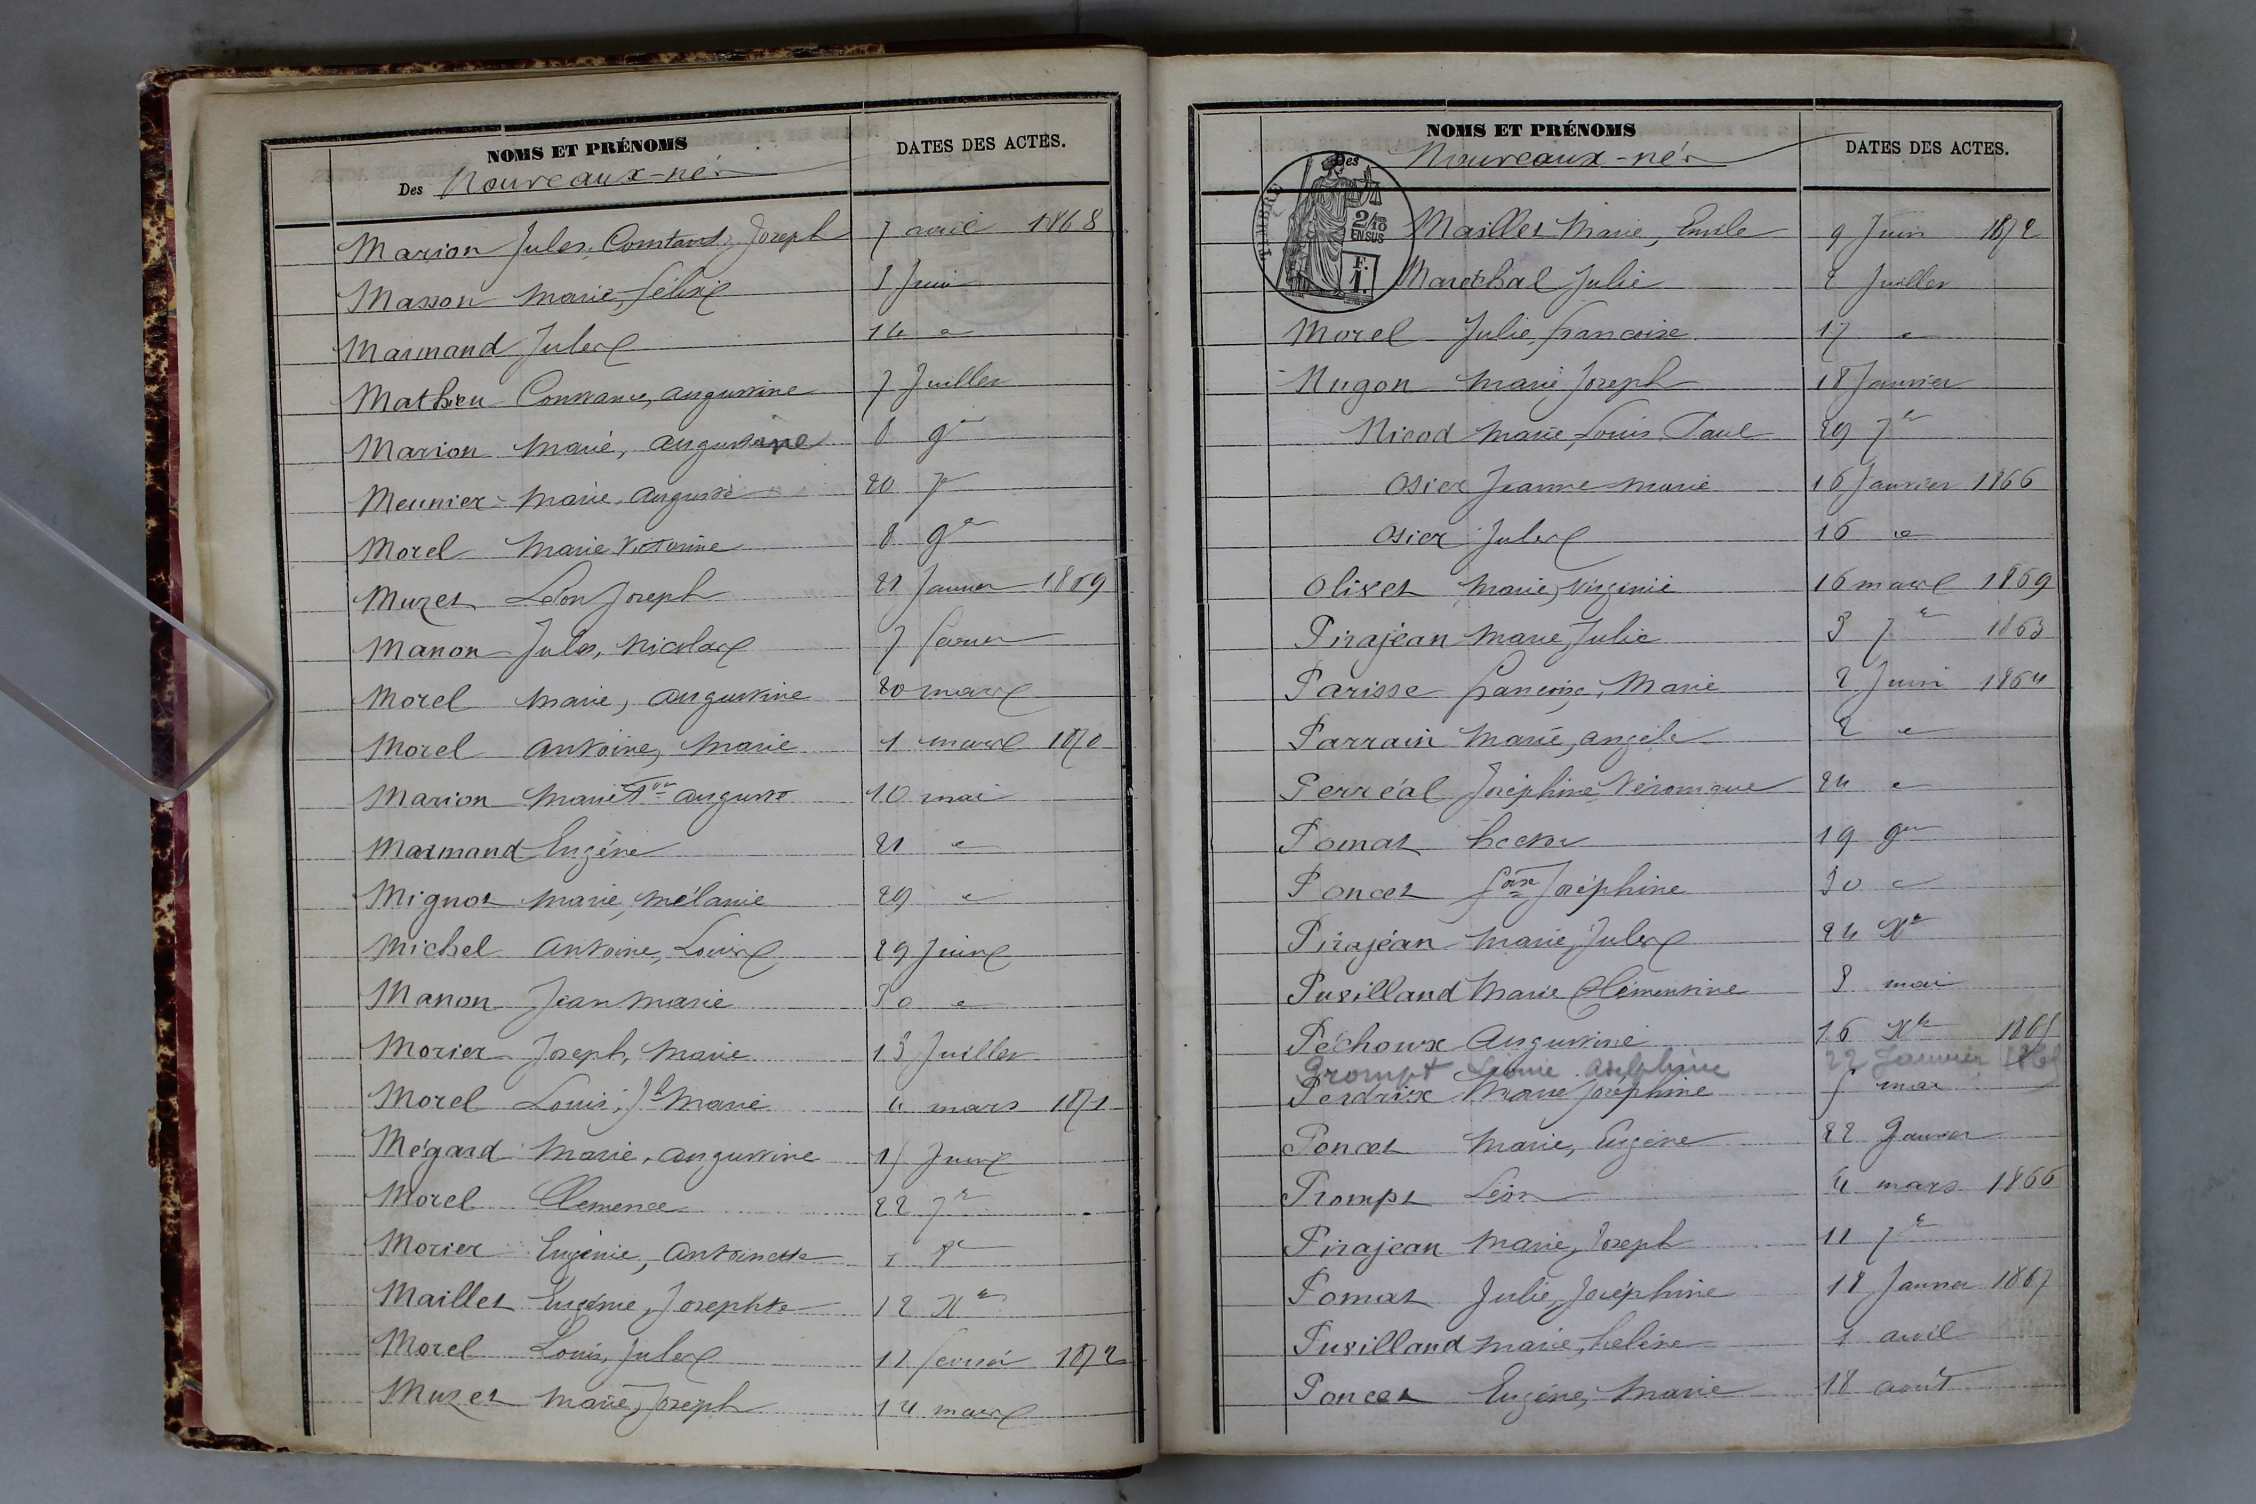 NOMS ET PRÉNOMS
DATES DES ACTES.
Des Nouveaux-nés
Marion Jules, Constant, Joseph 7 avril 1868
Masson Marie, Félixe Juin
Marmand Jules 14 "
Mathieu Constance, augustine 7 Juillet
Marion Marie, augustine 8 9re
Meunier Marie auguste 20 7e
Morel Marie Victorine 8 9re
Muzet Léon Joseph 21 Janvier 1869
Manon Jules, Nicolas 7 février
Morel Marie, augustine 20 mars
Morel Antoine, Marie 1 mars 1870
Marion Marie auguste 10 mai
Marmand Eugène 21 "
Mignot Marie, Mélanie 29 "
Michel Antoine, Louis 29 Juin
Manon Jean Marie 30 "
Morier Joseph, Marie 13 Juillet
Morel Louis, Jh Marie 4 mars 1871
Mégard Marie, augustine Juin
Morel Clemence 22 7e
Morier Eugénie, Antoinette
Maillet Eugénie, Josephte 12 Xe
Morel Louis, Jules 11 février 1872
Muzet Marie, Joseph 14 mars
NOMS ET PRÉNOMS
DATES DES ACTES.
Des Nouveaux-nés
TIMBRE
2/10 EN SUS
F. 1.
Maillet Marie, Emile 9 Juin 1872
Maréchal Julie 2 Juillet
Morel Julie, françoise 17 "
Nugon Marie Joseph 18 Janvier
Nicod Marie Louis Paul 29 7e
Osier Jeanne Marie 16 Janvier 1866
Osier Jules 16 "
Olivet Marie, Virginie 16 mars 1869
Pirajean Marie, Julie 3 7e 1863
Parisse françoise, Marie 2 Juin 1864
Parrain Marie, angèle 2 "
Perréal Joséphine Véronique 24 "
Pomat hector 19 9re
Poncet foise Joséphine 30 "
Pirajéan Marie, Jules 24 Xe
Puvilland Marie Clémentine 8 mai
Péchoux Augustine 16 Xe 1865
Prompt Léonie Adelphine 22 Janvier
Perdrix Marie Joséphine mai
Poncet Marie, Eugène 22 Janvier
Prompt Léon 4 mars 1866
Pirajean Marie, Joseph 11 7e
Pomat Julie, Joséphine 18 Janvier 1867
Puvilland Marie, helène 1 avril
Poncet Eugène, Marie 18 août